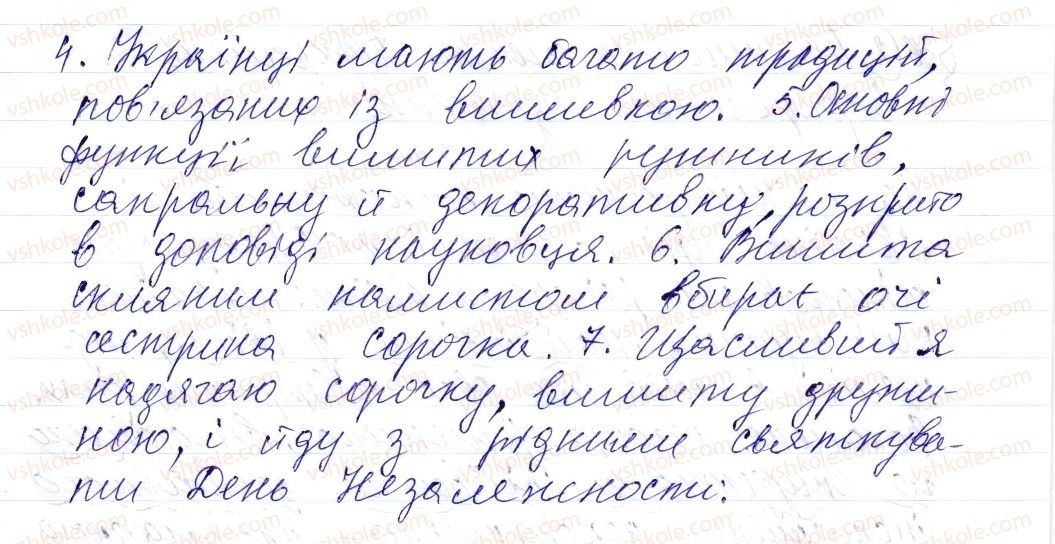 4. Українці мають багато традицій,
пов'язаних із вишивкою. 5. Основні
функції вишитих рушників,
сакральну й декоративну, розкрито
в доповіді науковця. 6. Вишита
скляним намистом вбирає очі
сестрина сорочка. 7. Щасливий я
надягаю сорочку, вишиту дружи-
ною, і йду з рідними святкува-
ти День Незалежності.